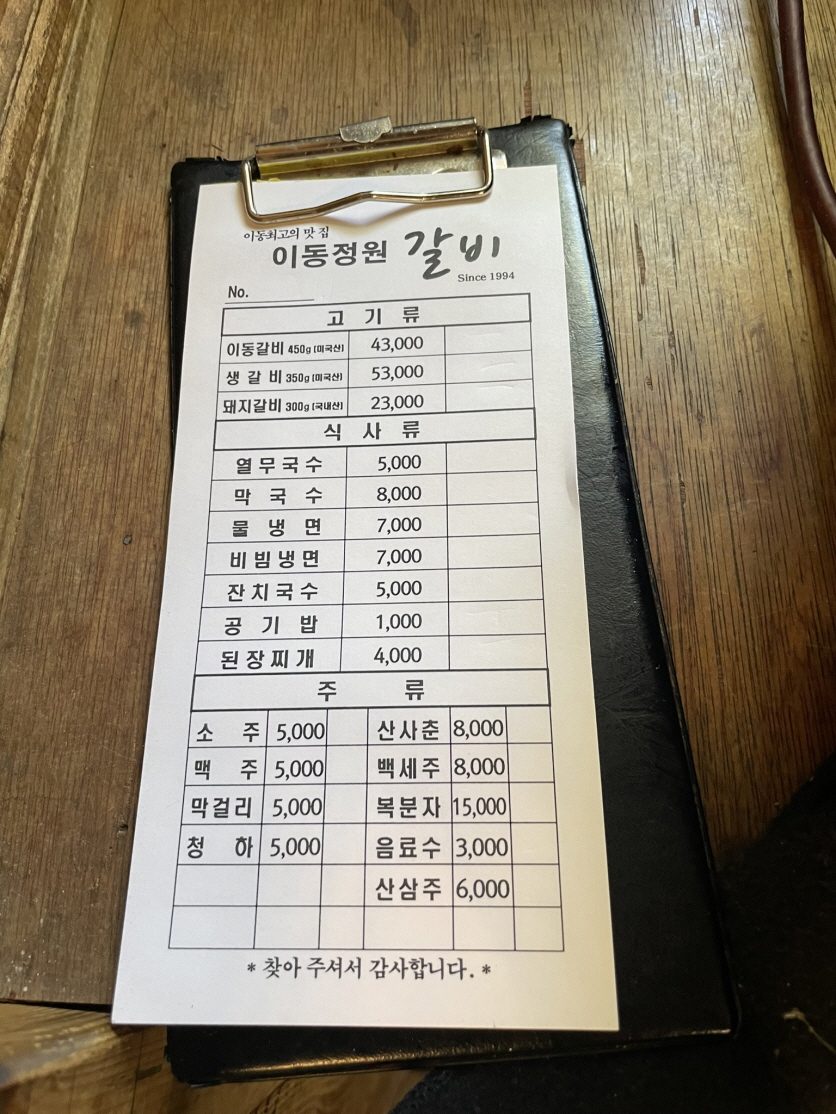 이동최고의 맛 집
이동정원 갈비
Since 1994
No.
고 기 류
이동갈비 450g (미국산) 43,000
생 갈 비 350g (미국산) 53,000
돼지갈비 300g (국내산) 23,000
식 사 류
열무국수 5,000
막 국 수 8,000
물 냉 면 7,000
비빔냉면 7,000
잔치국수 5,000
공 기 밥 1,000
된장찌개 4,000
주 류
소 주 5,000 산사춘 8,000
맥 주 5,000 백세주 8,000
막걸리 5,000 복분자 15,000
청 하 5,000 음료수 3,000
산삼주 6,000
* 찾아 주셔서 감사합니다. *